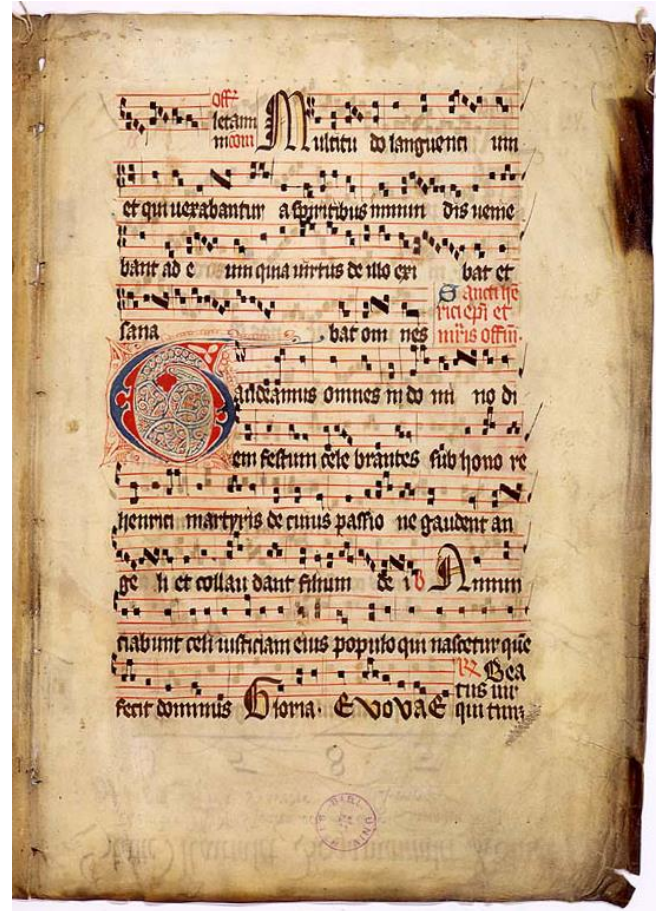 off
letamini
com Multitu do languenti um
et qui uexabantur a spiritibus inmun dis uenie
bant ad e um quia uirtus de illo exi bat et
sana bat om nes
Sancti he
rici epi et
mris offm.
Gaudeamus omnes in do mi no di
em festum cele brantes sub hono re
henrici martyris de cuius passio ne gaudent an
ge li et collau dant filium de i V Annun
ciabunt celi iusticiam eius populo qui nascetur que
fecit dominus Gloria. EVOVAE
Bea
tus uir
qui tim